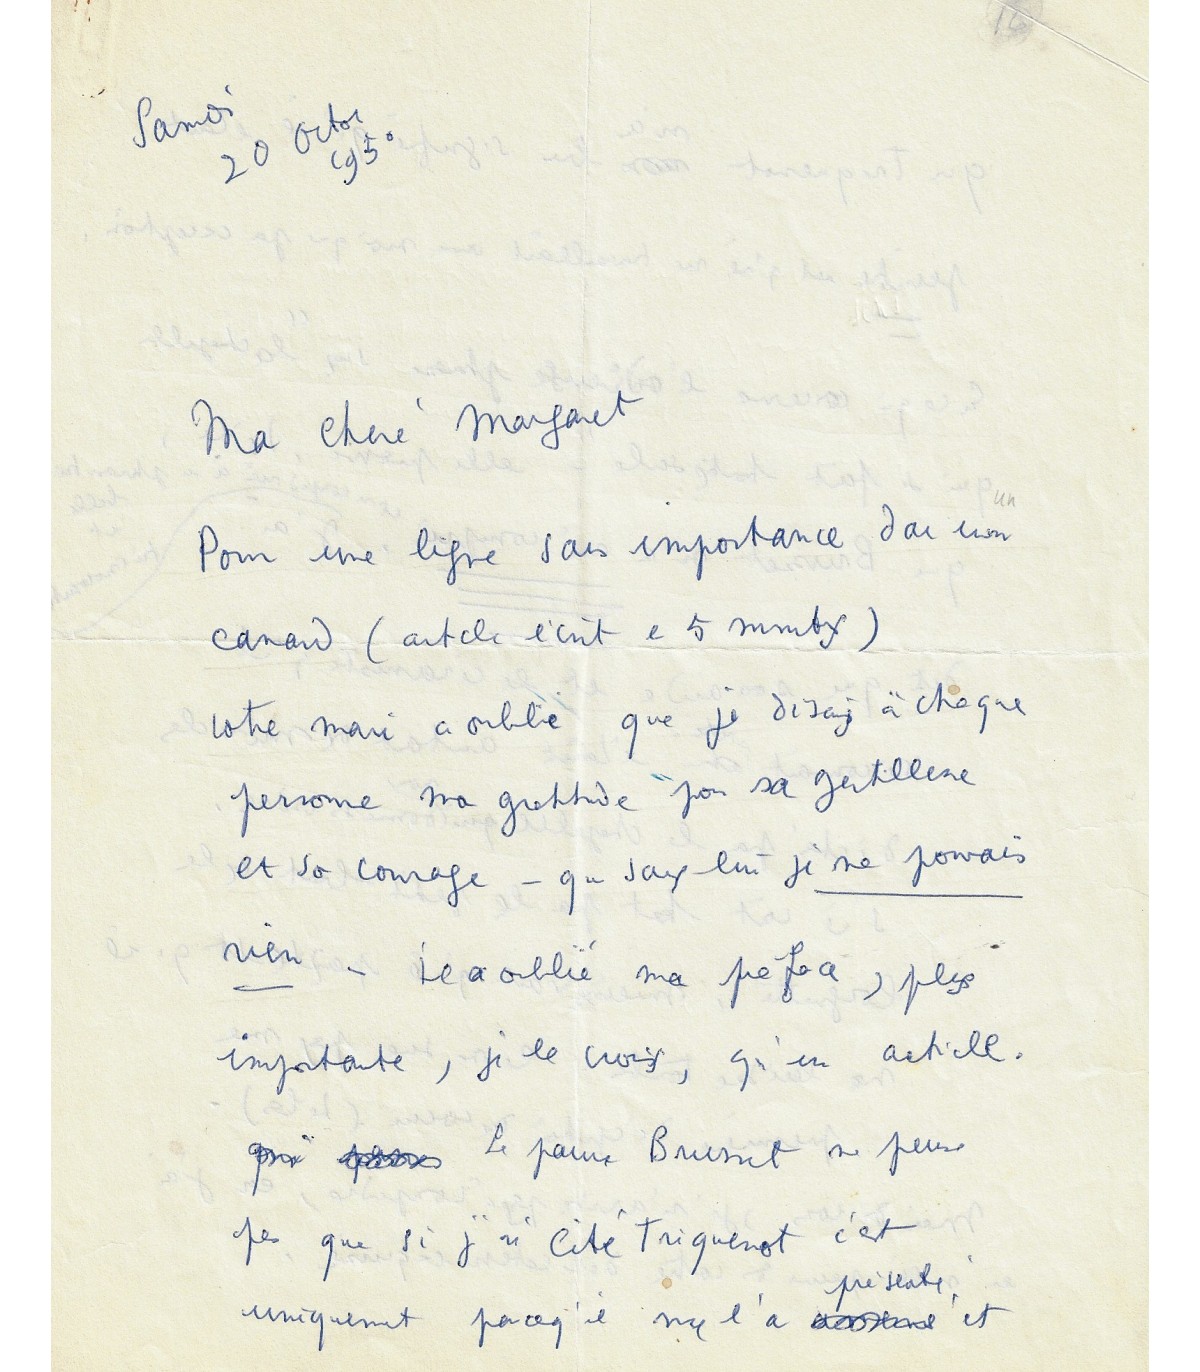 Samedi
20 Octobre
1950
Ma chère Margaret
Pour une ligne sans importance dans un
canard (article écrit en 5 minutes)
votre mari a oublié que je disais à chaque
personne ma gratitude pour sa gentillesse
et son courage – que sans lui je ne pouvais
rien – Il a oublié ma préface, plus
importante, je le crois, qu'un article.
qui Le pauvre Brusset ne pense
pas que si j'ai cité Triquenot c'est
uniquement parce qu'il me l'a présenté, et